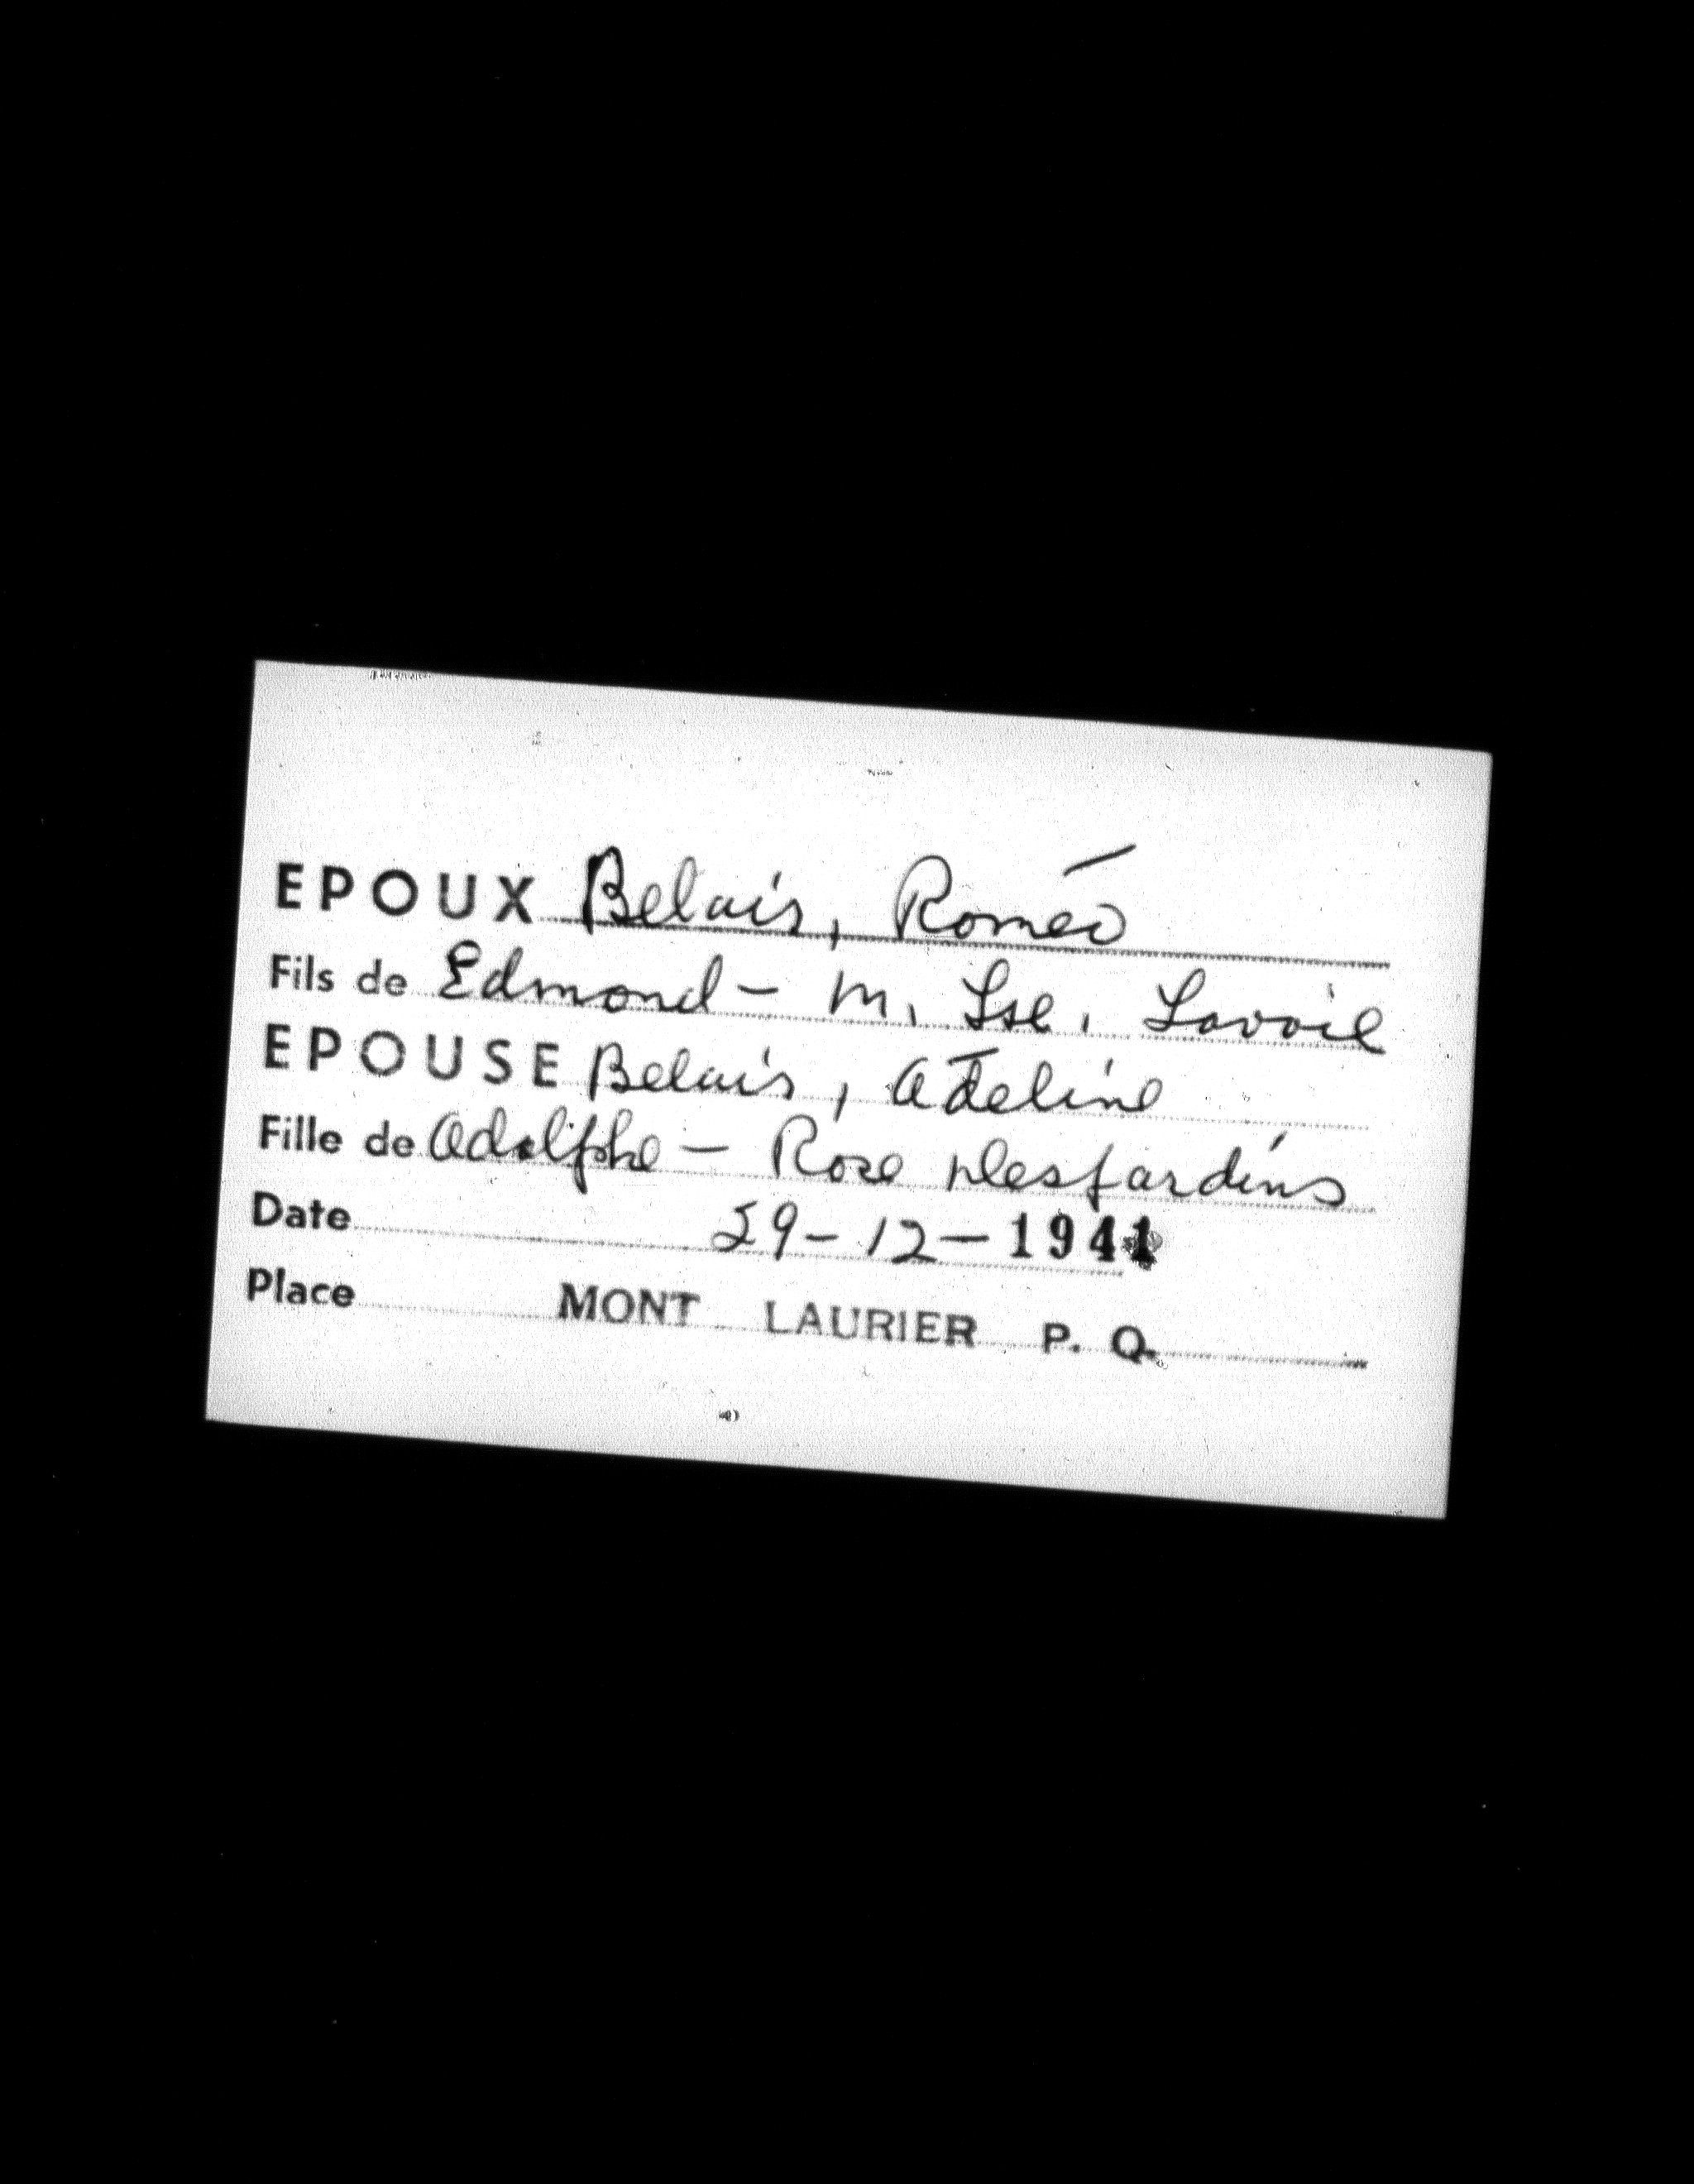 EPOUX Belais, Roméo
Fils de Edmond - M. Lse. Lavoie
EPOUSE Belais, Adeline
Fille de Adolphe - Rose Desjardins
Date 29-12-1941
Place MONT LAURIER P. Q.